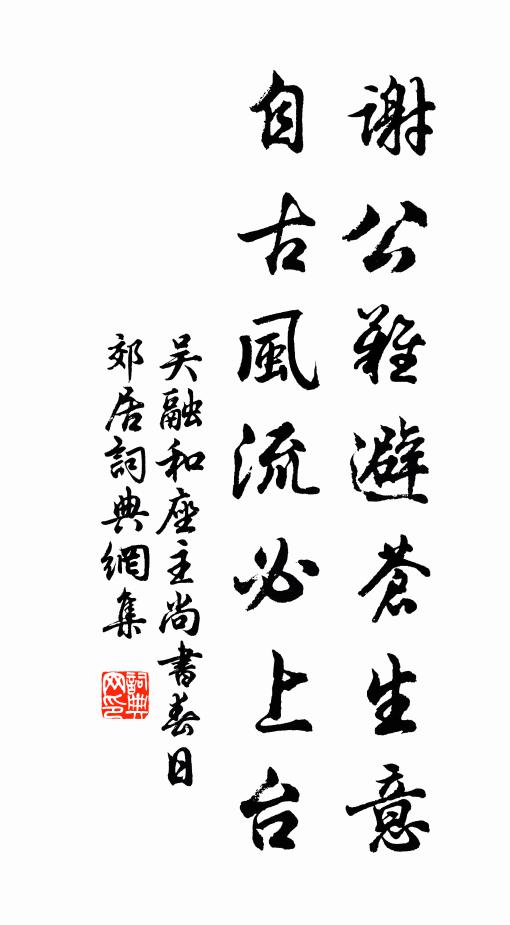 謝公難避蒼生意
自古風流必上台
吴融和座主尚書春日
郊居詞典網集
詞典网印